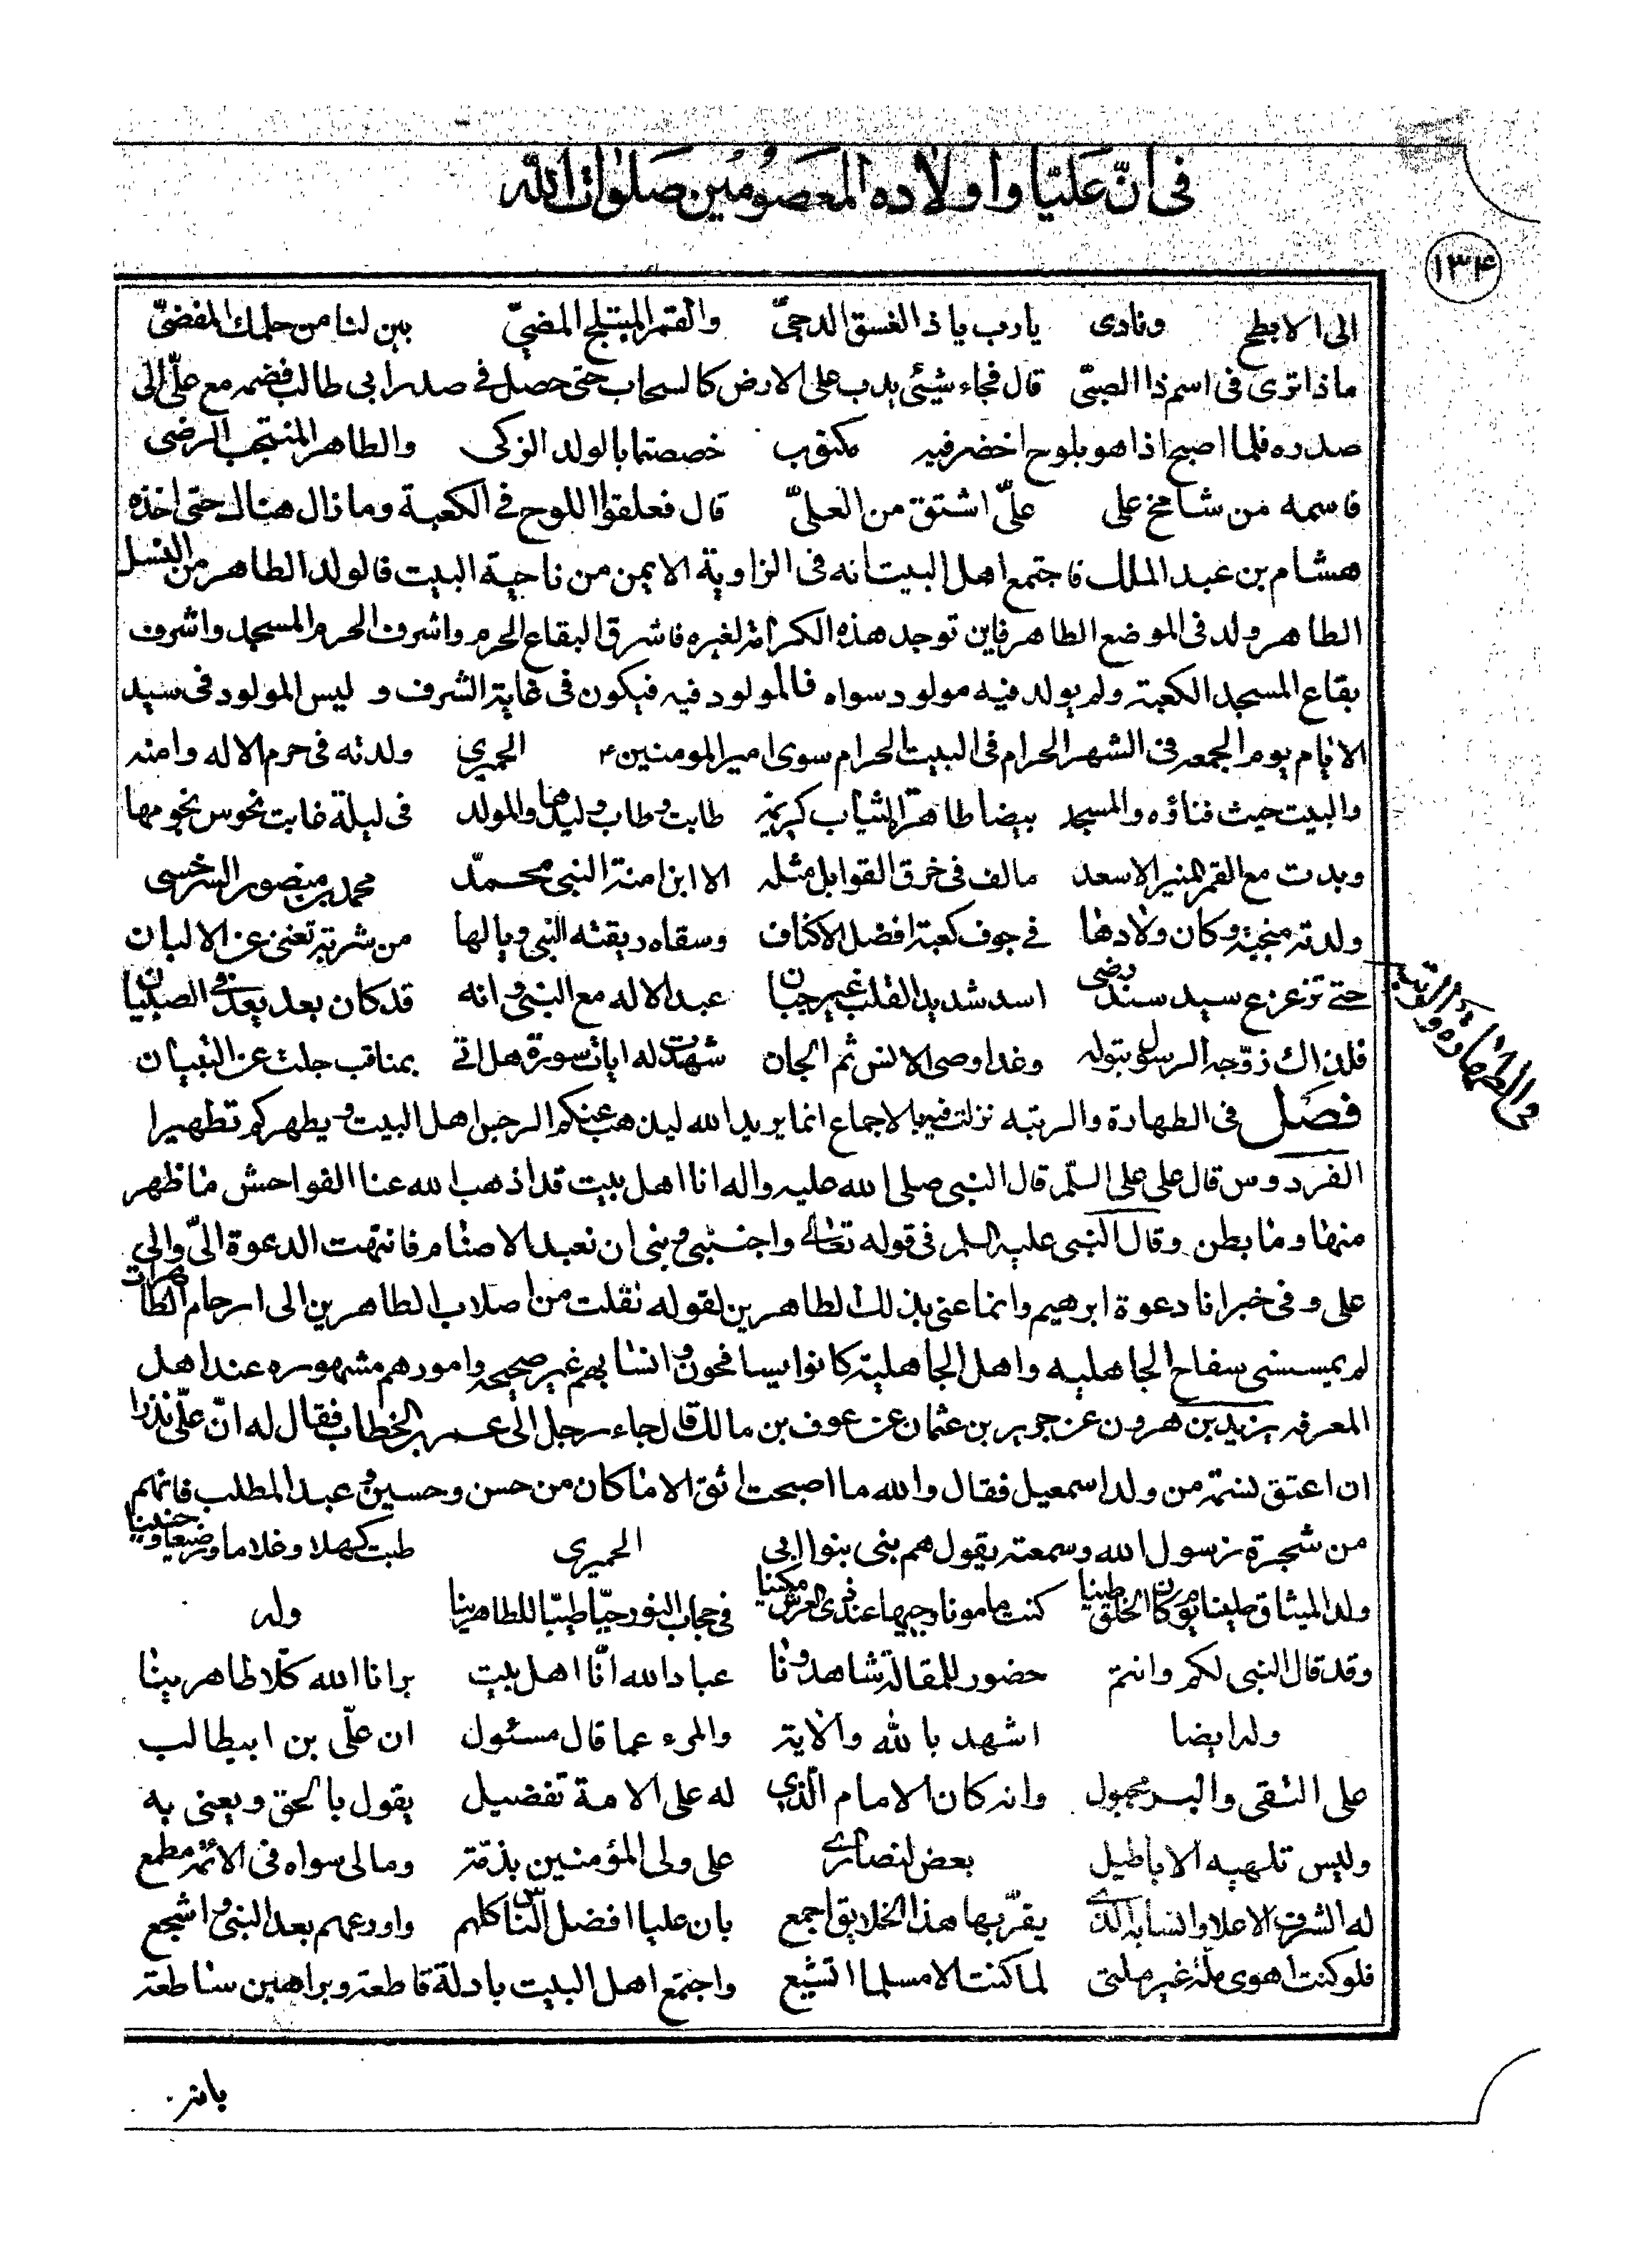 فى ان عليا واولاده المعصومين صلوات الله
١٣۴
الى الابطح ونادى يا رب يا ذا الغسق الدجىّ والقمر المبتلج المضىّ بين لنا من حكمك المقضىّ
ماذا ترى فى اسم ذا الصبىّ قال فجاء شيئى يدب على الارض كالسحاب حتى حصل فى صدر ابى طالب فضمه مع علىّ الى
صدره فلما اصبح اذا هو بلوح اخضر فيه مكتوب خصصتما بالولد الزكى والطاهر المنتجب الرضى
فاسمه من شامخ على علىّ اشتق من العلىّ قال فعلقوا اللوح فى الكعبة وما زال هناك حتى اخذه
هشام بن عبد الملك فاجتمع اهل البيت انه فى الزاوية الايمن من ناحية البيت فالولد الطاهر من النسل
الطاهر ولد فى الموضع الطاهر فاين توجد هذه الكرامة لغيره فاشرف البقاع الحرم واشرف الحرم المسجد واشرف
بقاع المسجد الكعبة ولم يولد فيه مولود سواه فالمولود فيه فيكون فى غاية الشرف و ليس المولود فى سيد
الايام يوم الجمعة فى الشهر الحرام فى البيت الحرام سوى امير المومنين ع الحميرى ولدته فى حرم الاله وامنه
والبيت حيث فناؤه والمسجد بيضا طاهرة الثياب كريمة طابت وطاب وليدها والمولد فى ليلة غابت نحوس نجومها
وبدت مع القمر المنير الاسعد ما لف فى خرق القوابل مثله الا ابن امنة النبى محمّد محمد بن منصور السرخسى
ولدته منجبة وكان ولادها فى جوف كعبة افضل الاكناف وسقاه ريقته النبى ويا لها من شربة تغنى عن الالبان
حتى ترعرع سيد سند رضى اسد شديد القلب غير جبان عبد الاله مع النبى وانه قد كان بعد يعد فى الصبيان
فلذاك زوّجه الرسول بتوله وغدا وصى الانس ثم الجان شهدت له ايات سورة هل اتى بمناقب جلت عن التبيان
فى الطهارة والرتبة
فصل فى الطهارة والرتبه نزلت فيه بالاجماع انما يريد الله ليذهب عنكم الرجس اهل البيت ويطهركم تطهيرا
الفردوس قال على على السلم قال النبى صلى الله عليه واله انا اهل بيت قد اذهب الله عنا الفواحش ما ظهر
منها وما بطن وقال النبى عليه السلم فى قوله تعالى واجنبنى وبنى ان نعبد الاصنام فانتهت الدعوة الىّ والى
على وفى خبر انا دعوة ابرهيم وانما عنى بذلك الطاهرين لقوله نقلت من اصلاب الطاهرين الى ارحام الطاهرات
لم يمسسنى سفاح الجاهليه واهل الجاهلية كانوا يسافحون وانسابهم غير صحيحه وامورهم مشهوره عند اهل
المعرفه يزيد بن هرون عن جوير بن عثمان عن عوف بن مالك قال جاء رجل الى عمر بن الخطاب فقال له انّ علىّ نذرا
ان اعتق نسمة من ولد اسمعيل فقال والله ما اصبحت اثق الا ما كان من حسن وحسين وعبد المطلب فانهم
من شجرة رسول الله وسمعته يقول هم بنى بنو ابى الحميرى طبت كهلا وغلاما ورضيعا وجنينا
ولدا الميثاق طينا يوم كان الخلق طينا كنت مامونا وجيها عند ذى العرش مكينا فى حجاب النور حيّا طيبّا للطاهرينا وله
وقد قال النبى لكم وانتم حضور للمقالة شاهدونا عباد الله انّا اهل بيت برانا الله كلّا طاهرينا
وله ايضا اشهد بالله والايه والمرء عما قال مسئول ان علىّ بن ابيطالب
على التقى والبر مجبول وانه كان الامام الذى له على الامة تفضيل يقول بالحق ويعنى به
وليس تلهيه الاباطيل بعض النصارى على ولى المؤمنين بذمّة ومالى سواه فى الائمة مطمع
له الشرف الاعلا والنسابة الذى يقرّ بها هذا الخلايق اجمع بان عليا افضل النّاس كلهم واورعهم بعد النبى واشجع
فلو كنت اهوى ملّة غير ملتى لما كنت الا مسلما اتشيع واجتمع اهل البيت بادلة قاطعة وبراهين ساطعة
بانه